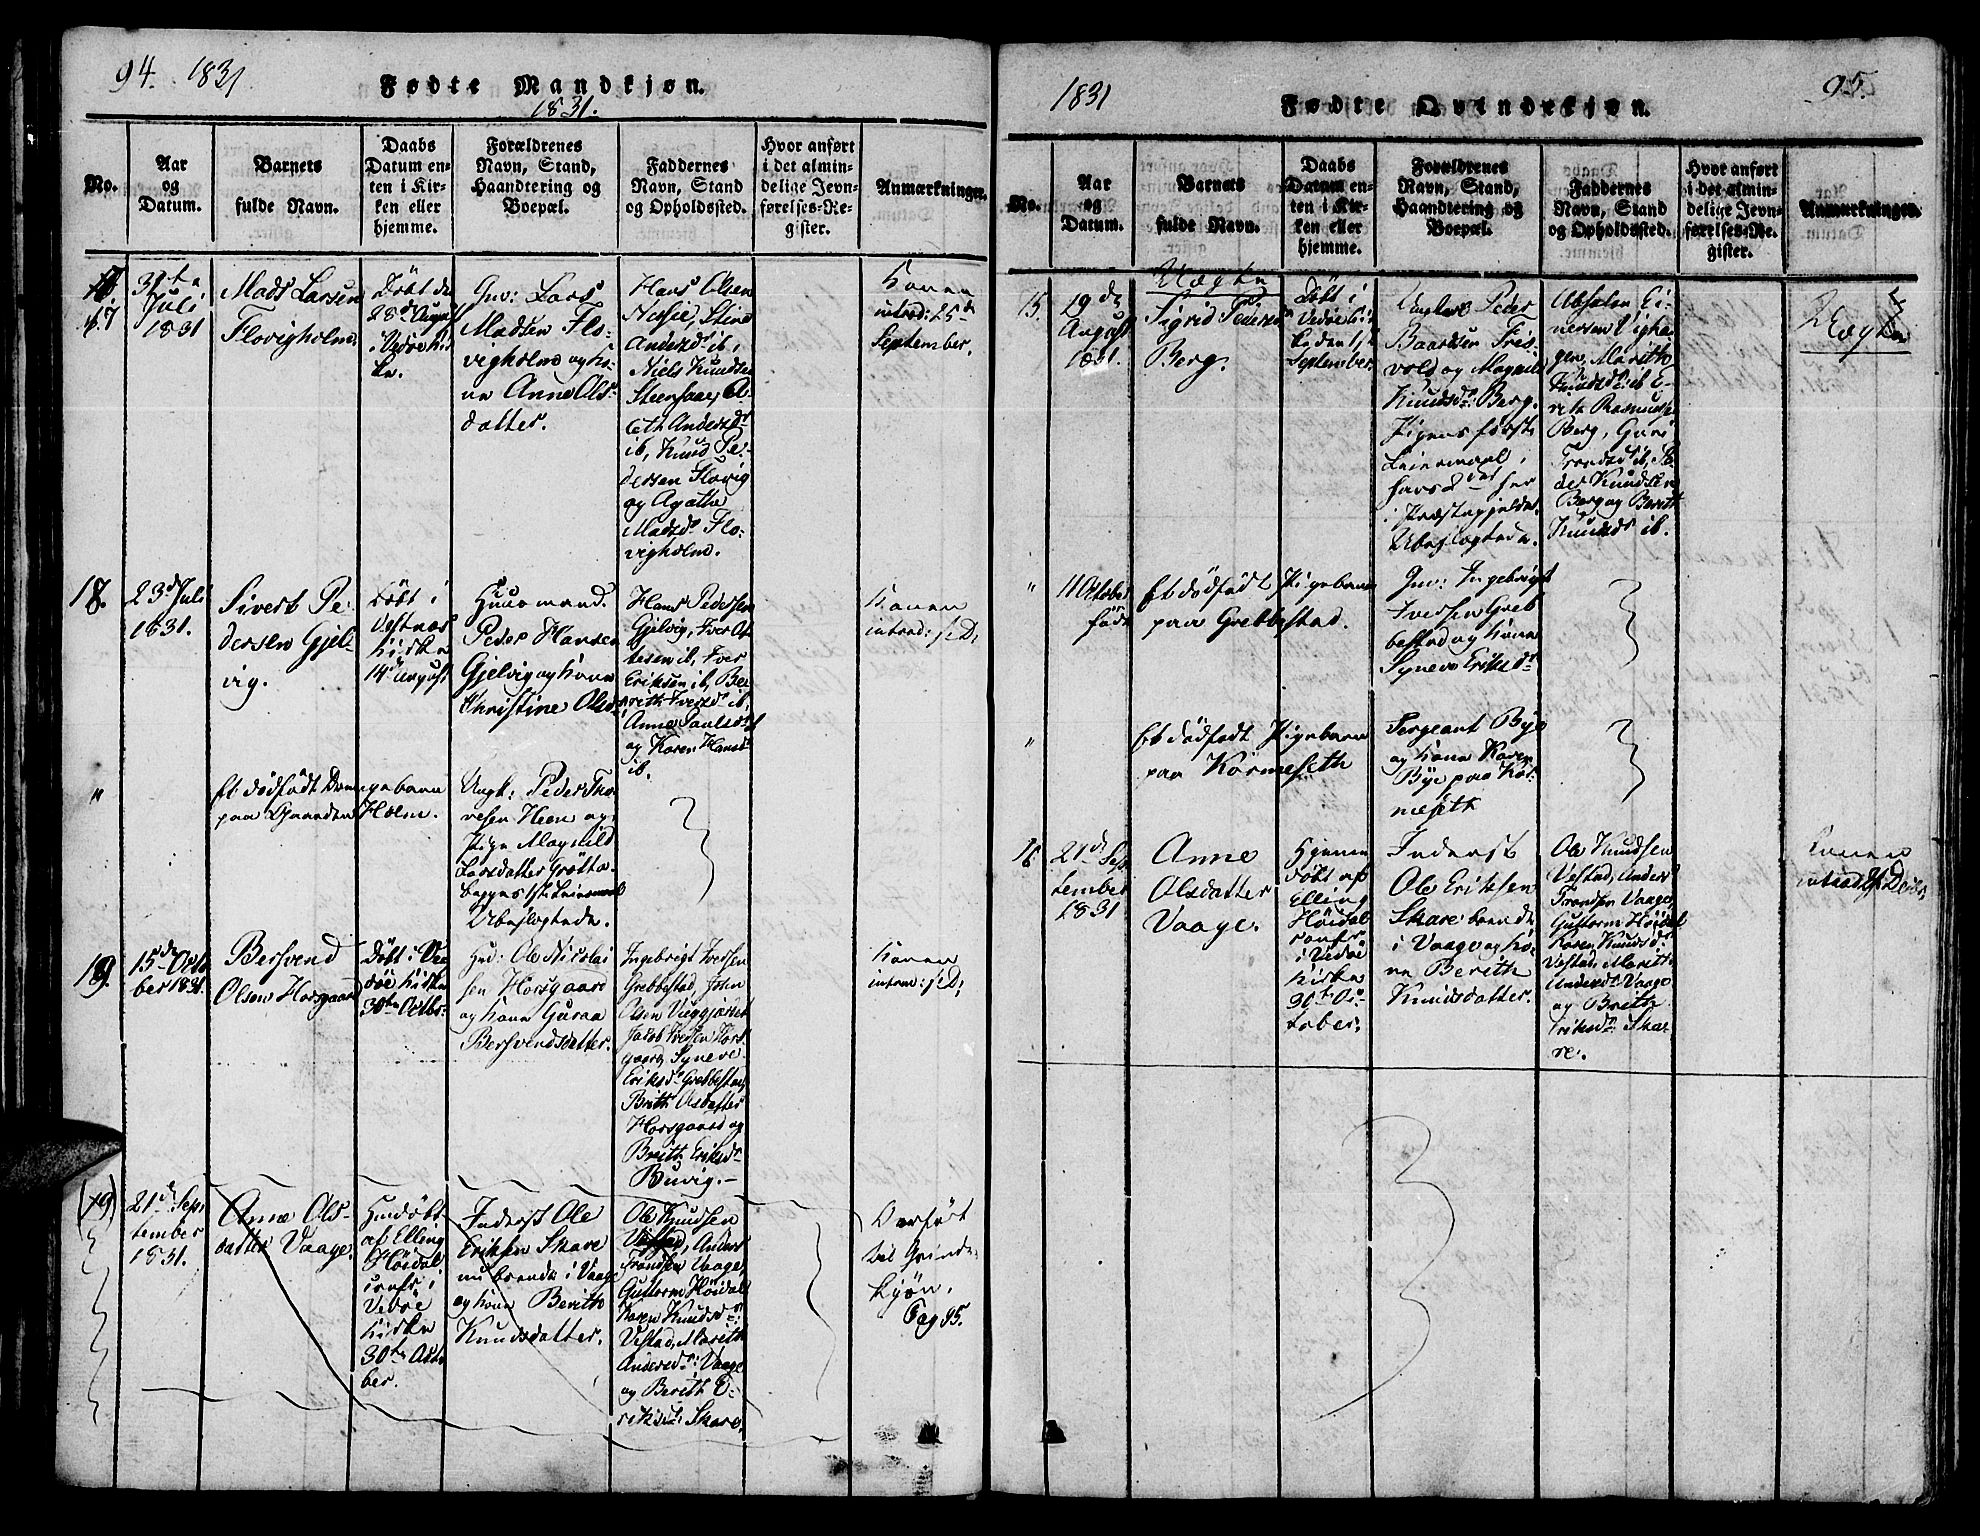 94. 1831
Fødte Mandkjøn.
1831.
No.
Aar
og
Datum.
Barnets
fulde Navn.
Daabs
Datum en-
ten i Kir-
ken eller
hjemme.
Forældrenes
Navn, Stand,
Haandtering og
Boepæl.
Faddernes
Navn, Stand
og Opholdssted.
Hvor anført
i det almin-
delige Jevn-
førelses-Re-
gister.
Anmærkninger.
17
Juli
1831
Mads Larsen
Flovigholm.
Döbt den
28de August
i Vedöe Kir-
ke.
Gm: Lars
Madsen Flo-
vigholm og ko-
ne Anne Ols-
datter.
Hans Olsen
Nesjie, Stine
Andersdr ib,
Niels Knudsen
ib, Knud Pe-
dersen Flovig
og Agathe
Madsdr Flo-
vigholm.
Konen
introd: 25de
September.
18.
23de Juli
1831.
Sivert Pe-
dersen Gjel-
vig.
Döbt i
Vestnæs
Kirke
14de August
Huusmand
Peder Hansen
Gjelvig og kone
Christine Olsdr
Hans Pedersen
Gjelvig, Iver Ol-
Eriksen ib, Be-
rith Iversdr ib,
Anne Paulsdr
og Karen Hansdr
ib.
Konen
introd: s: D:
"
Et dödfödt Drengebarn
paa Gaarden Holm.
Ungk: Peder Tho-
resen Heen og
Pige Magnild
Larsdatter Grötta-
Begges 1ste Leiermaal
Ubeslægtede.
19.
15de Octo-
ber 1831.
Bersvend
Olsen Horsgaard
Döbt i Ve-
döe Kirke
30te Octbr.
Gm: Ole Nicolai
sen Horsgaard
og kone Guraa
Bersvendsdatter.
Ingebrigt Iversen
Grebbestad, John
Olsen
Jacob Iversen Hors-
gaard, Synneve
Eriksdr Grebbestad,
Brith Olsdatter
Horsgaard og
Brith Eriksdr
Buvig.
Konen
introd: s: D:
(19)
21de Sep-
tember
1831.
Anne Ols-
datter Vaage.
Hiemdöbt
af Elling
Höidal
confr. i
Vedöe
Kirke
30te Octo-
ber.
Inderst Ole
Eriksen Skare
nu boende i Vaage
og kone Berith
Knudsdatter.
Ole Knudsen
Vestad, Anders
Trondsen Vaage,
Guttorm Höidal
Karen Knudsdr:
Vestad, Marith
Andersdr: Vaage
og Berith E-
riksdr: Skare.
Overfört
til Qvinde-
kjön.
Pag 95.
1831
Fødte Qvindekjøn.
95.
No.
Aar
og
Datum.
Barnets
fulde Navn.
Daabs
Datum en-
ten i Kir-
ken eller
hjemme.
Forældrenes
Navn, Stand,
Haandtering og
Boepæl.
Faddernes
Navn, Stand
og Opholdssted.
Hvor anført
i det almin-
delige Jevn-
førelses-Re-
gister.
Anmærkninger.
15.
19de
August
1831.
Uægte
Sigrid Pedersdr
Berg.
Döbt i
Vedöe Kir-
ke den
September.
Ungkarl Peder
Baardsen Tres-
vold og Magnild
Knudsdr: Berg.
Pigens förste
Leiermaal,
i Præstegjeldet.
Ubeslægtede.
Absalon Ei-
nersen Vigha-
gen, Marith
Knudsdr ib, E-
rik Rasmussen
Berg, Guri
Trondsdr ib, Pe-
der Knudsen
Berg og Berith
Knudsdr ib.
Uægte
"
11 October
födt
Et dödfödt Pigebarn
paa Grebbestad.
Gm: Ingebrigt
Iversen Greb-
bestad og kone
Synneve Eriksdr
"
Et dödfödt Pigebarn
paa Kormeseth
Sergeant Bye
og kone Karen
Bye paa Kor-
meseth
16
21de Sep-
tember
1831.
Anne
Olsdatter
Vaage.
Hjemme
döbt af
Elling
Höidal
confr
i Vedöe
Kirke
30te Oc-
tober.
Inderst
Ole Eriksen
Skare boende
i Vaage og ko-
ne Berith
Knudsdatter.
Ole Knudsen
Vestad, Anders
Trondsen Vaage,
Guttorm Höidal
Karen Knudsdr:
Vestad, Marith
Andersdr: Vaage
og Brith
Eriksdr: Ska-
re.
Konen
introd